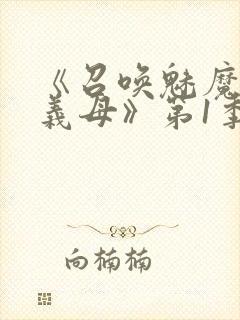 《召唤魅魔
義母》第1季
向楠楠